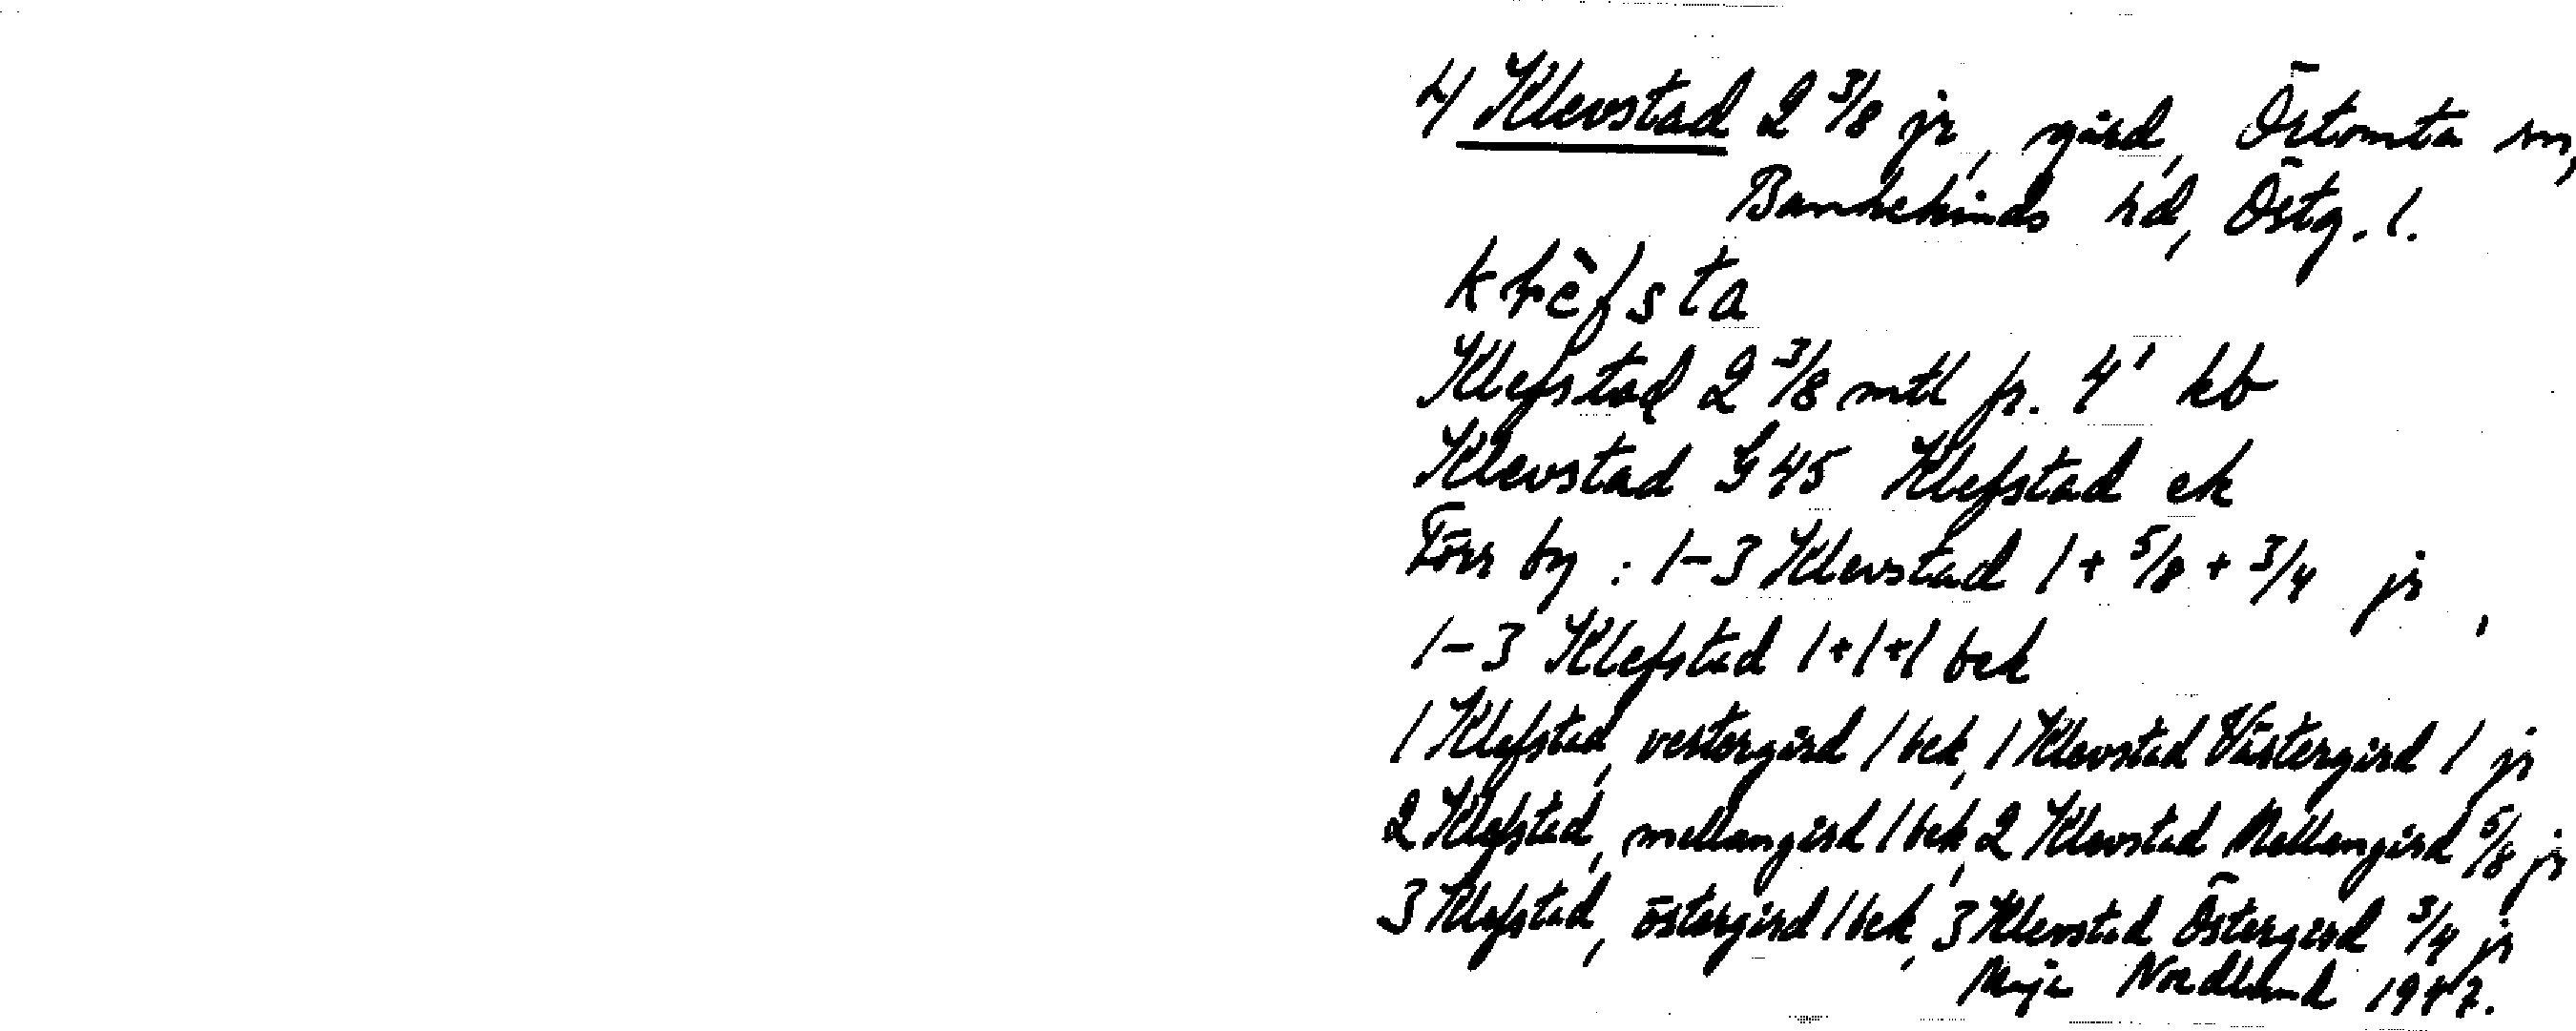 4/ Klevstad 2 3/8 jr, gård, Örtomta sn,
Bankekinds hd, Östg. l.
Klefstad 2 3/8 mtl fr. 4' kb
Klevstad G 45 Klefstad ek
Förr by : 1-3 Klevstad 1 + 5/8 + 3/4 jr,
1-3 Klefstad 1+1+1 bek
1 Klefstad, vestergård 1 bek, 1 Klevstad Västergård 1 jr
2 Klefstad, mellangård 1 bek, 2 Klevstad Mellangård 5/8 jr
3 Klefstad, östergård 1 bek, 3 Klevstad Östergård 3/4 jr
Maja Nordlund